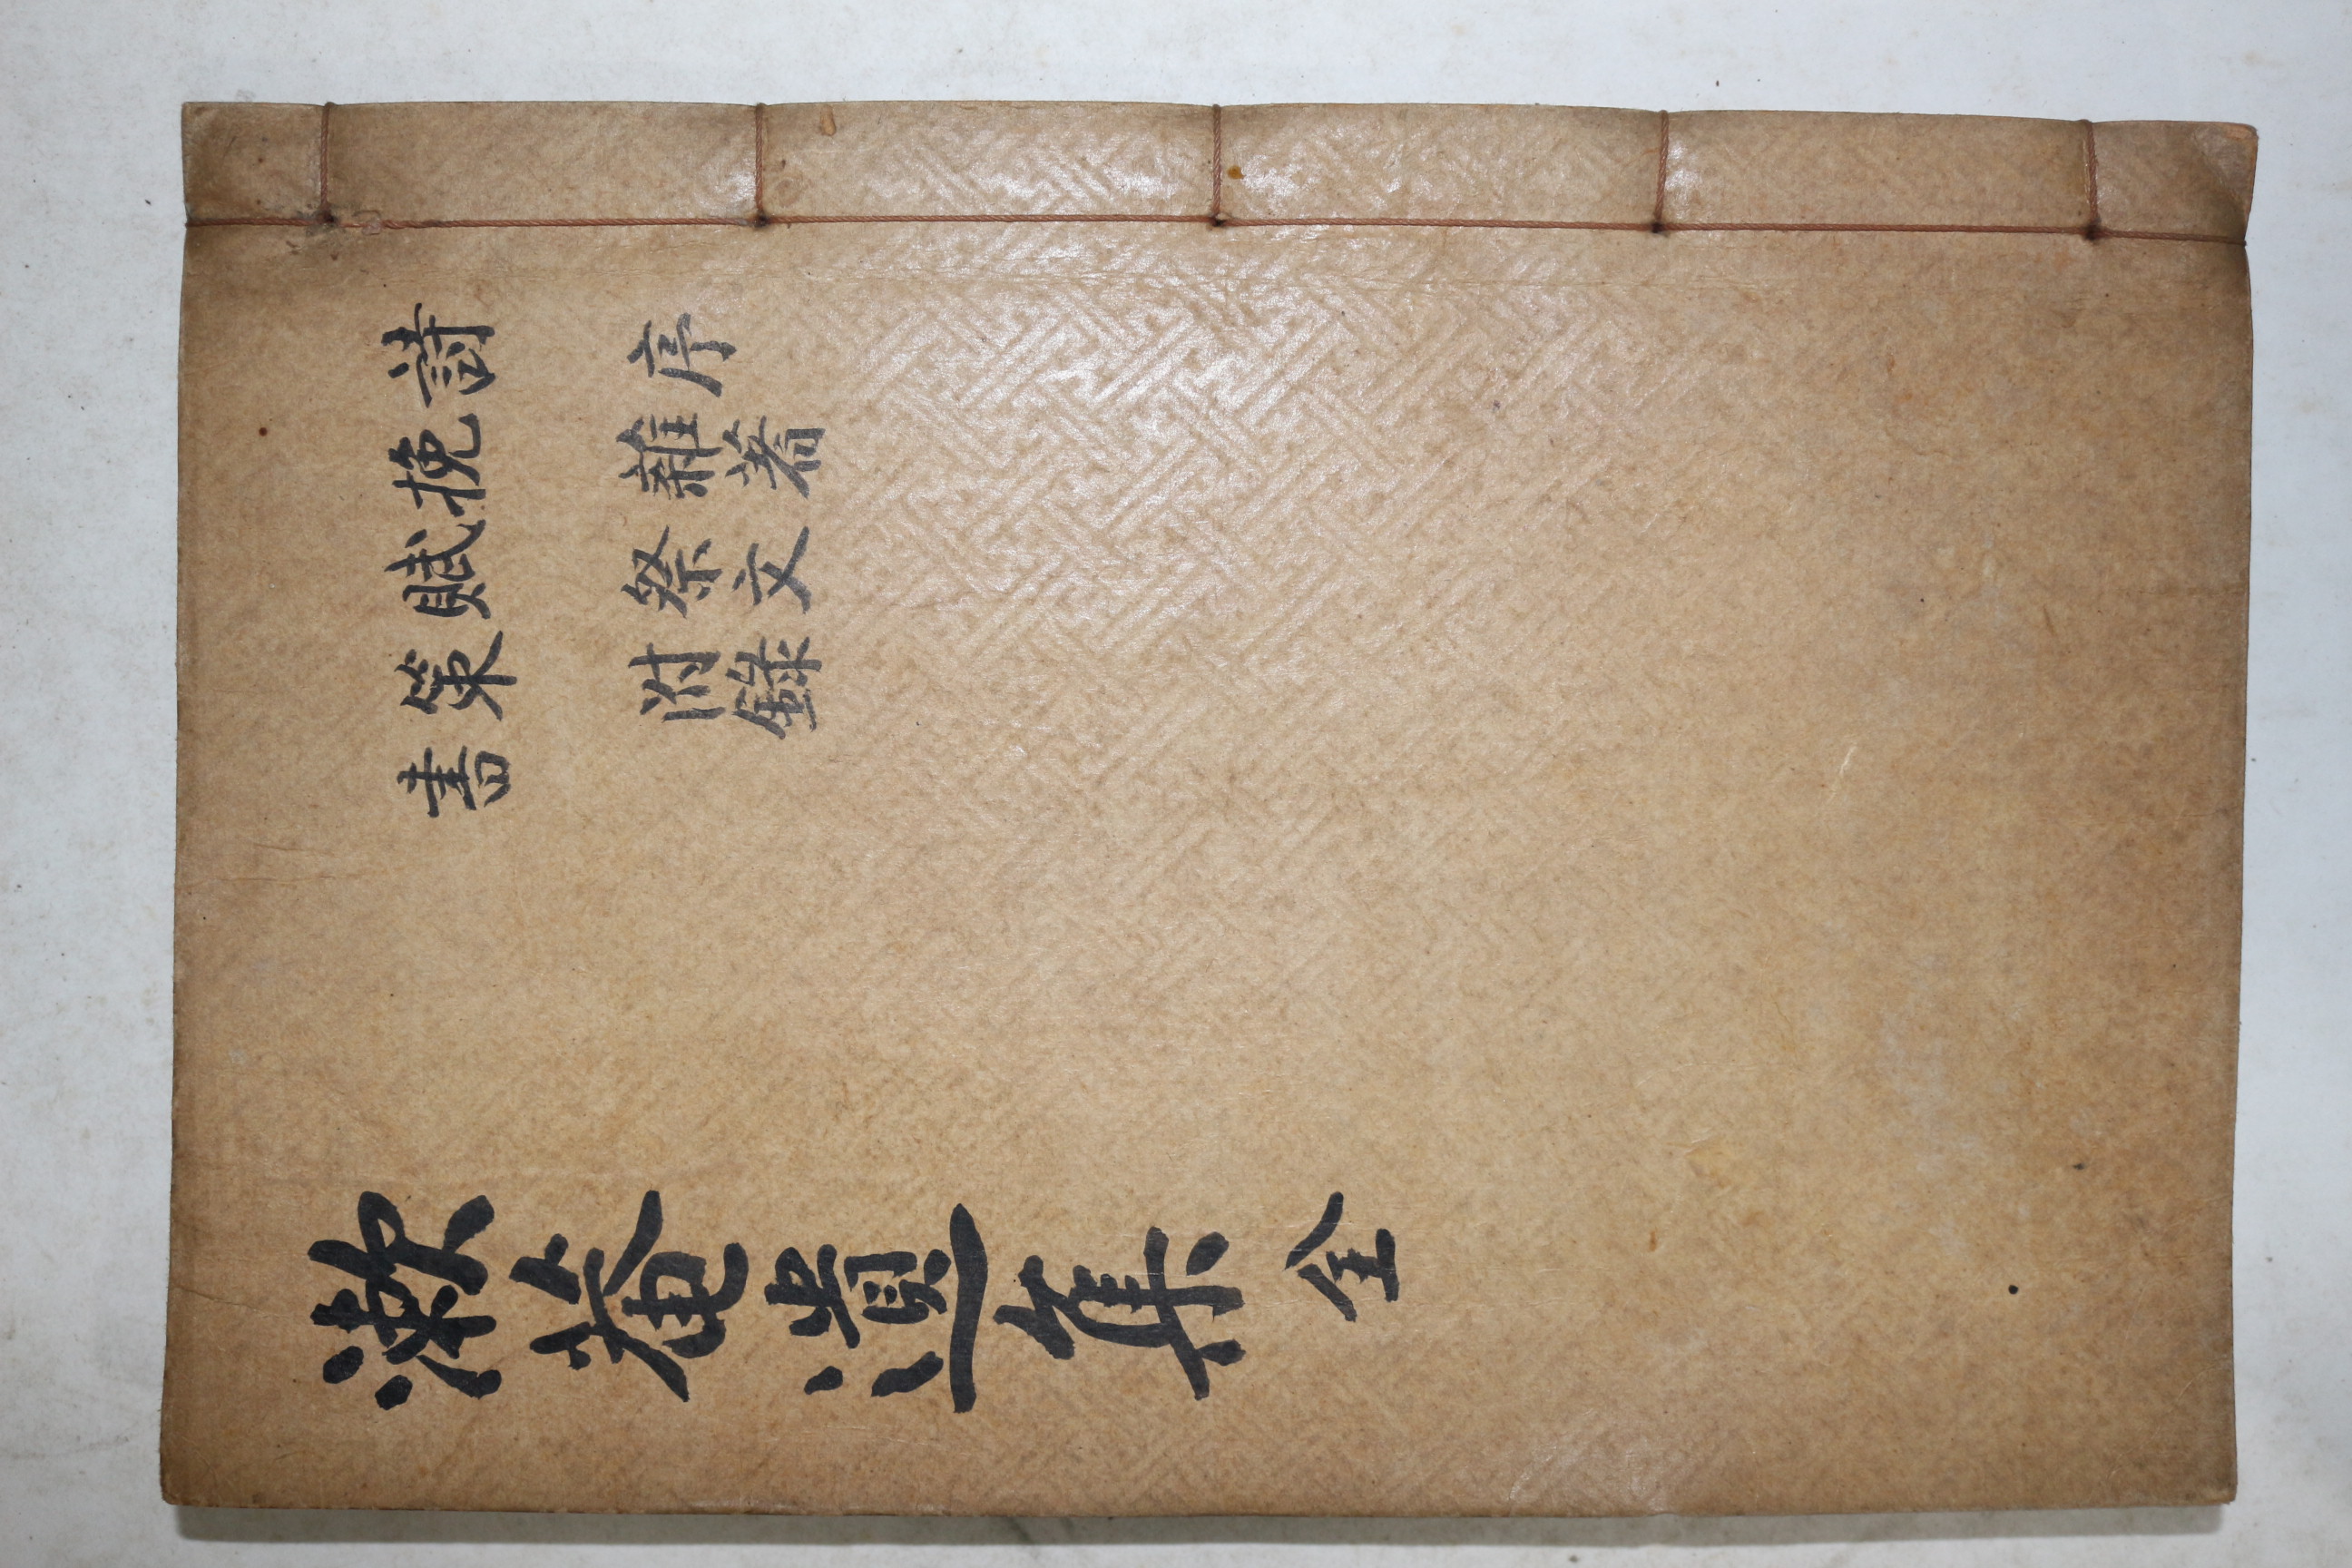 詩
挽
賦
策
書
序
雜著
祭文
附錄
漱菴遺集 全